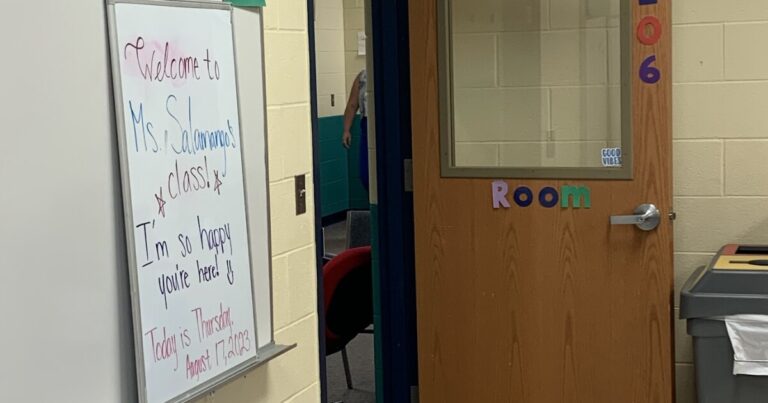 Welcome to
Ms. Salamango's
class!
I'm so happy
you're here!
Today is Thursday,
August 17, 2023
06
GOOD
VIBES
Room